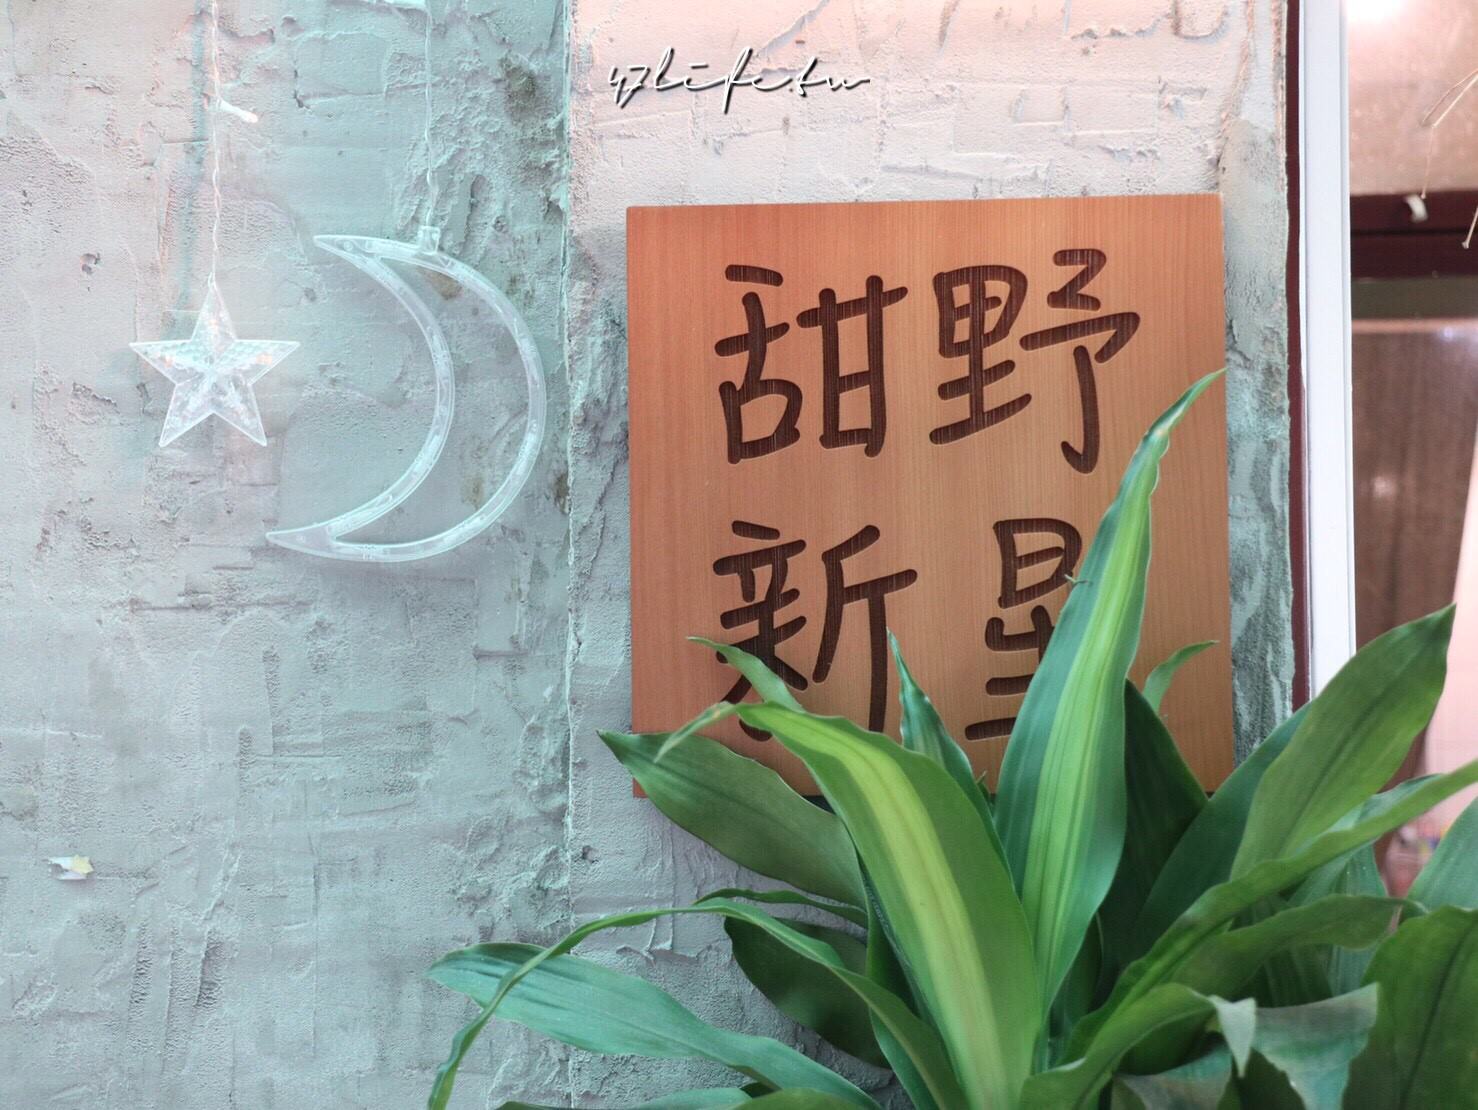 yzlife.tw
甜野
新星